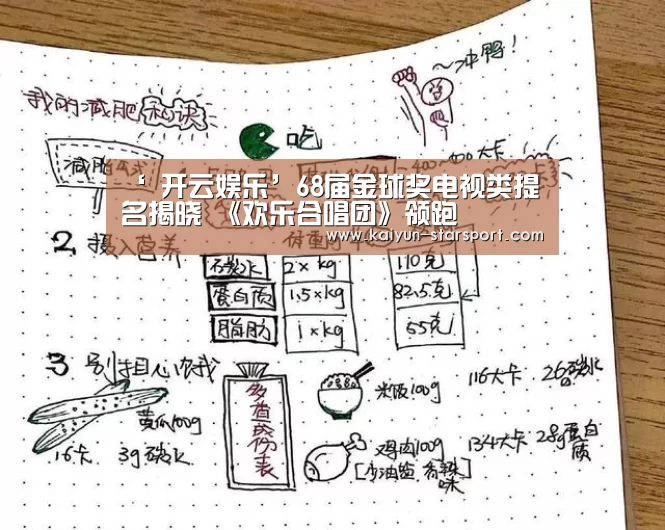 ~冲鸭!
我的减肥秘诀
吃
减脂
400大卡
‘开云娱乐’68届金球奖电视类提
名揭晓 《欢乐合唱团》领跑
www.kaiyun-starsport.com
2、摄入营养
体重kg
碳水 2×kg 110克
蛋白质 1.5×kg 82.5克
脂肪 1×kg 55克
3 别担心农我
食材成份表
黄瓜100g
16卡 3g碳水
米饭100g 116大卡 26碳水
鸡肉100g 134大卡 28g蛋白质
[少油盐、香辣味]